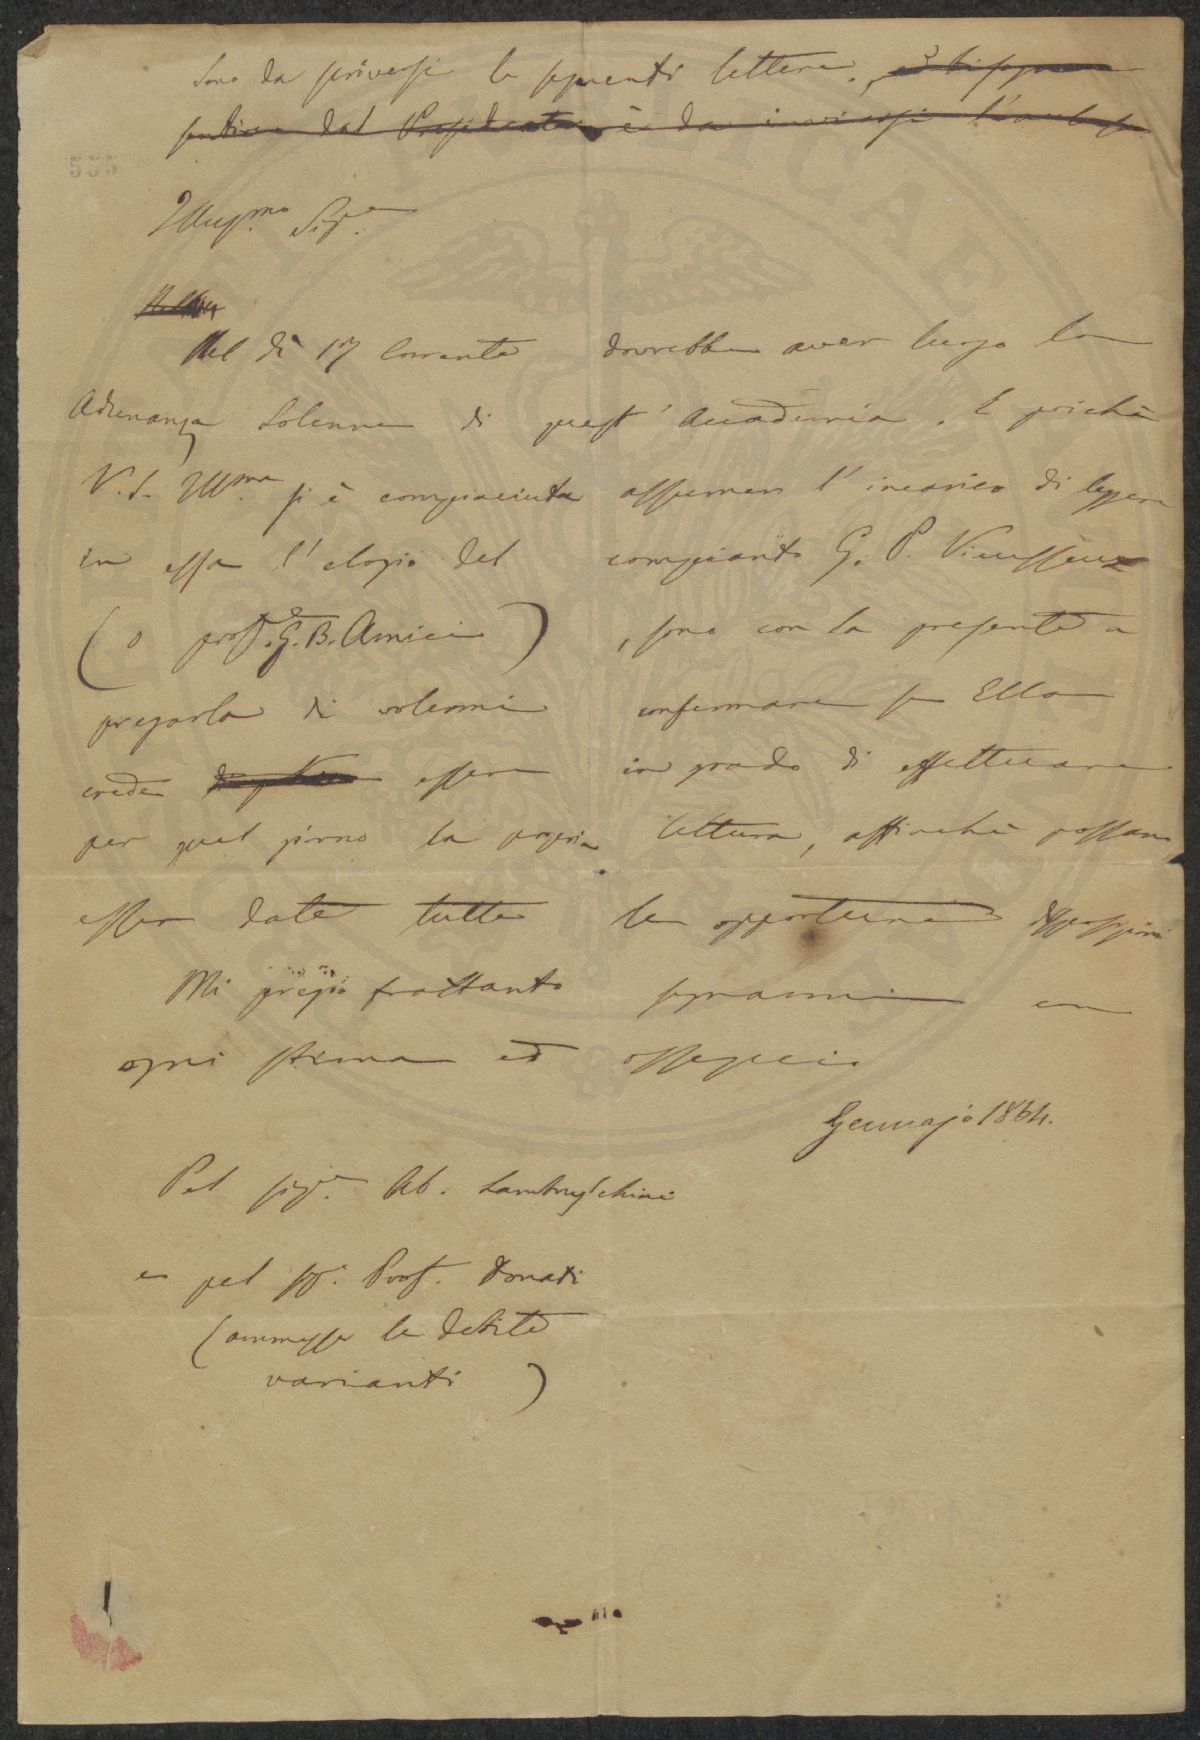 Sono da scriversi le seguenti lettere. ed bisogna
sentire dal Presidente se è da inviarsi
555
Illus.mo Sigr.
Nel dì 17 Corrente dovrebbe aver luogo la
Adunanza Solenne di quest' Accademia. E poichè
V. S. Ill.ma si è compiaciuta assumere l' incarico di leggere
in essa l' elogio del compianto G. P. Vieusseux
( o prof.e G. B. Amici ) , sono con la presente a
pregarla di volermi confermare se Ella
crede essere in grado di effettuare
per quel giorno la propria lettura, affinchè possano
esser date tutte le opportune disposizioni
Mi pregio frattanto segnarmi con
ogni stima ed ossequio
Gennajo 1864.
Pel sigr. Ab. Lambruschini
e pel sig. Prof. Donati
(ammesse le debite
varianti )